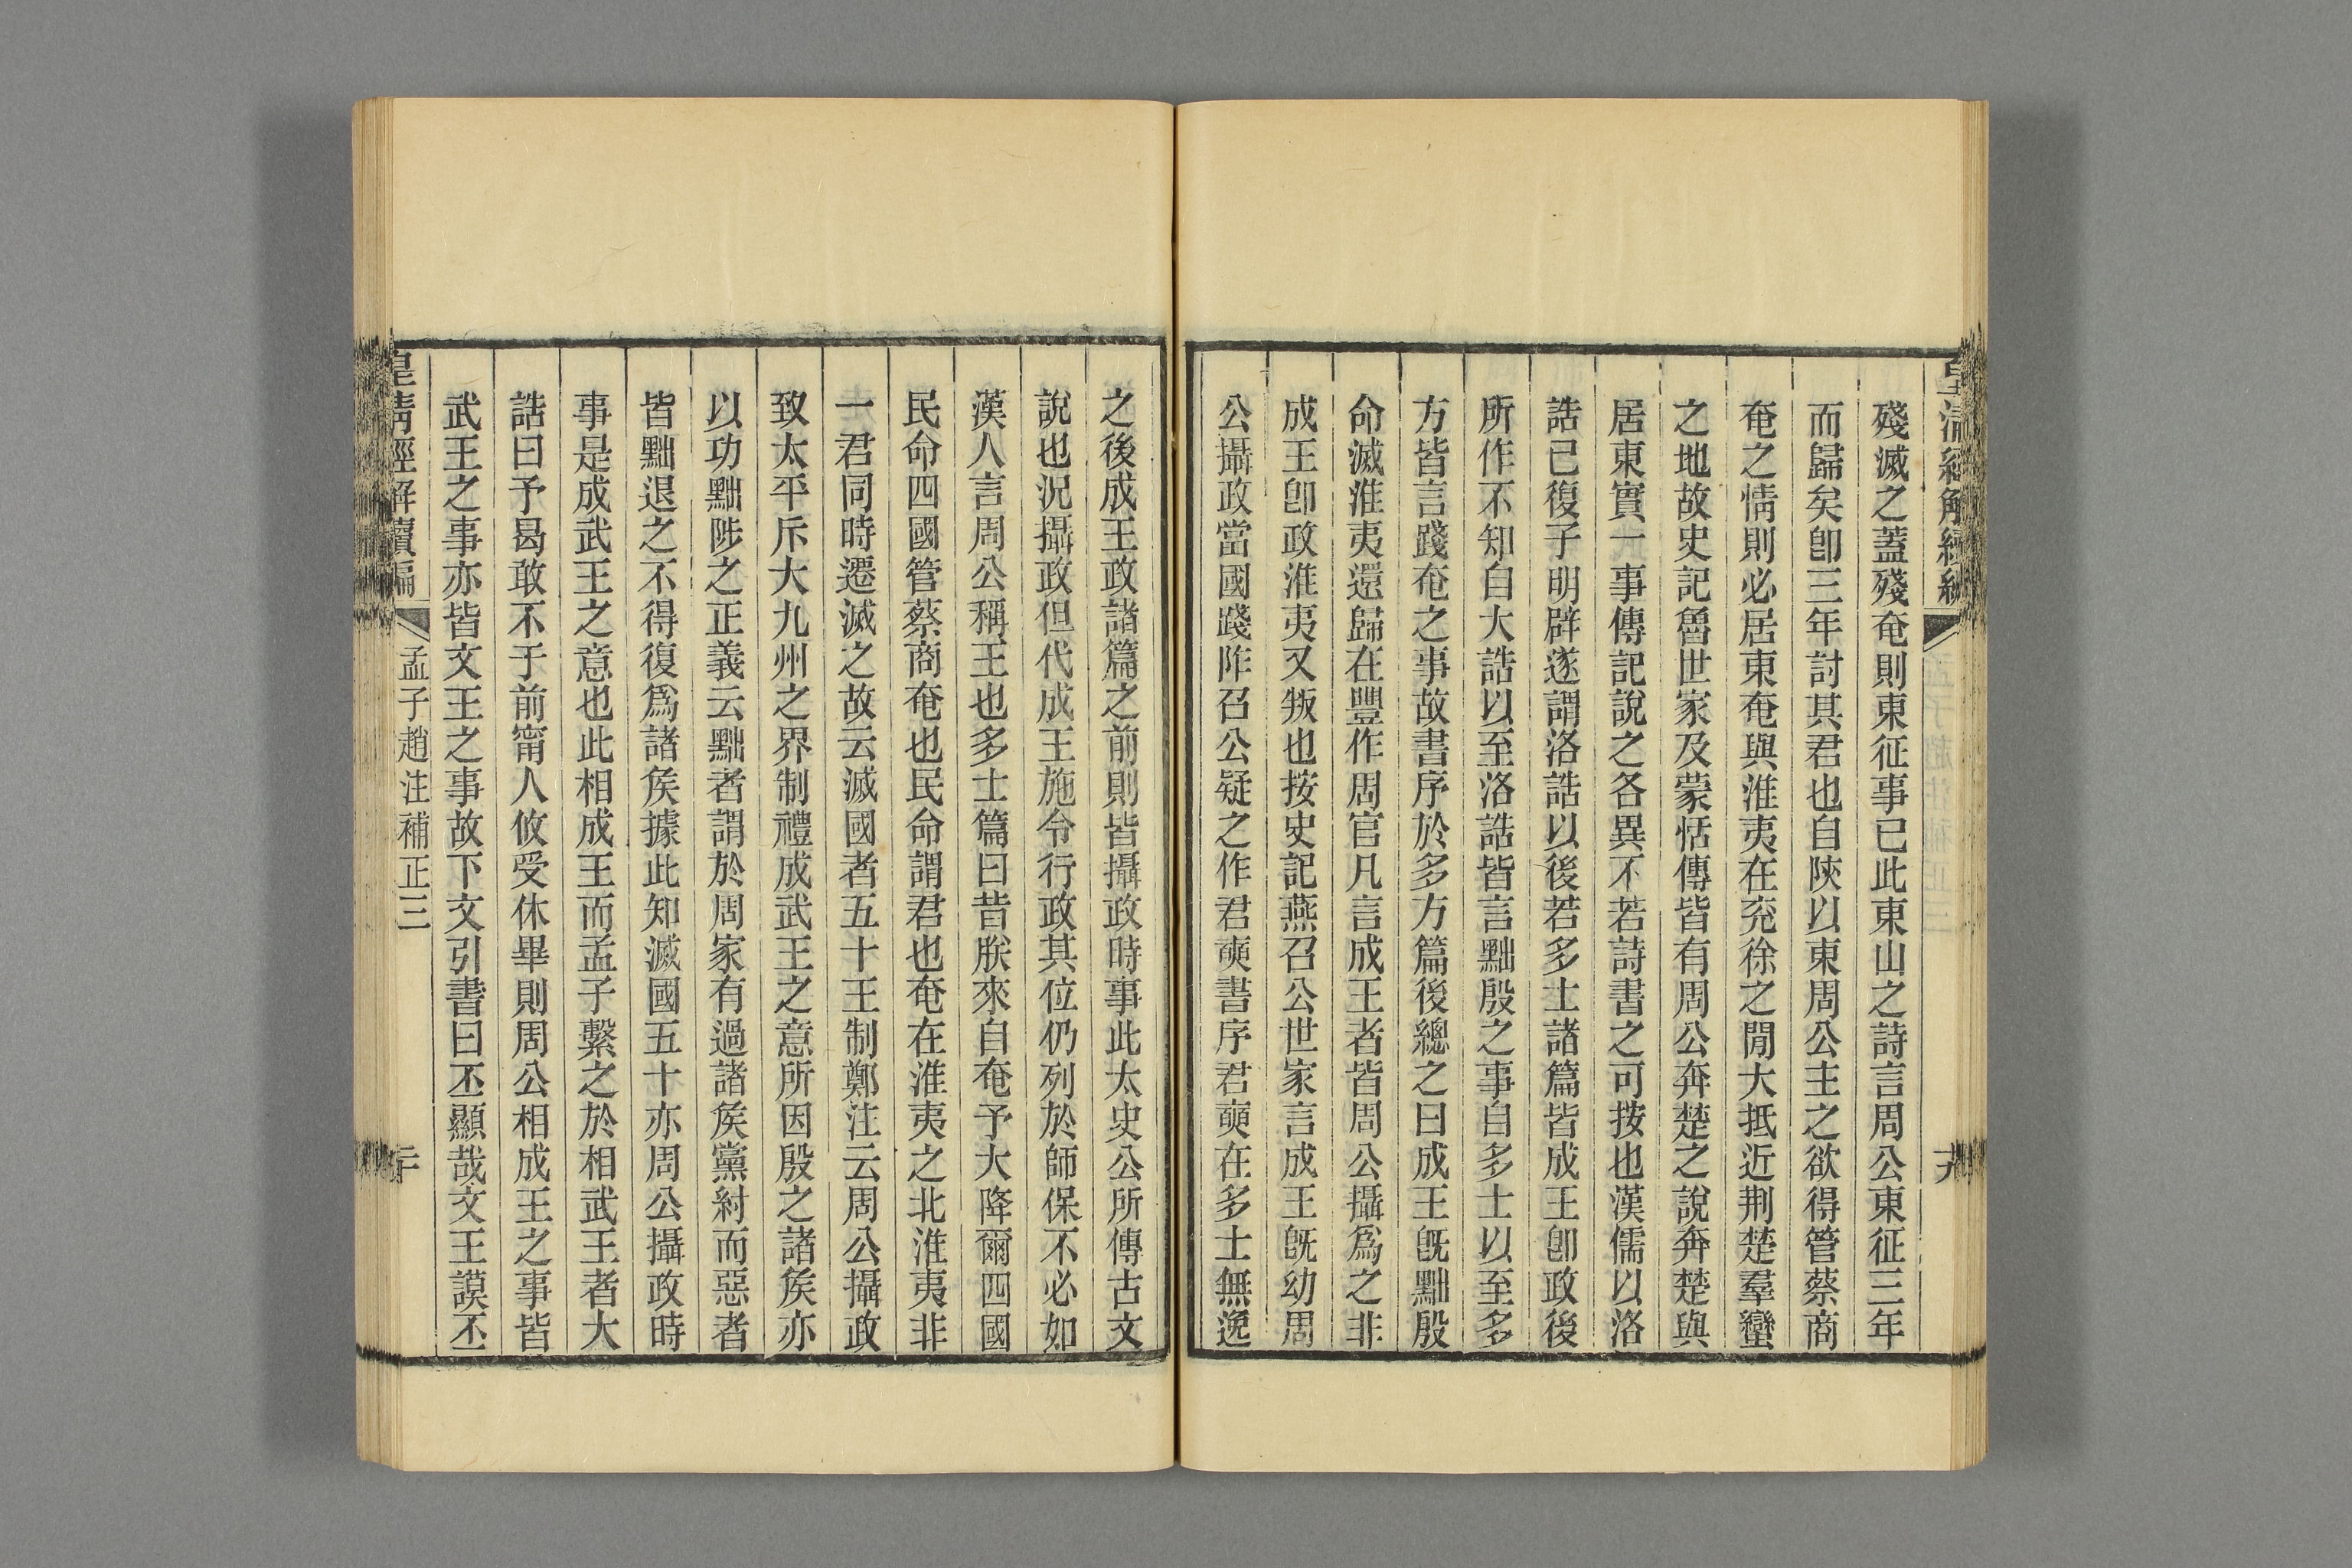 殘滅之蓋殘奄則東征事已此東山之詩言周公東征三年
而歸矣卽三年討其君也自陝以東周公主之欲得管蔡商
奄之情則必居東奄與淮夷在兖徐之閒大抵近荆楚羣蠻
之地故史記魯世家及蒙恬傳皆有周公奔楚之說奔楚與
居東實一事傳記說之各異不若詩書之可按也漢儒以洛
誥已復子明辟遂謂洛誥以後若多士諸篇皆成王卽政後
所作不知自大誥以至洛誥皆言黜殷之事自多士以至多
方皆言踐奄之事故書序於多方篇後總之曰成王旣黜殷
命滅淮夷還歸在豐作周官凡言成王者皆周公攝爲之非
成王卽政淮夷又叛也按史記燕召公世家言成王旣幼周
公攝政當國踐阼召公疑之作君奭書序君奭在多士無逸
之後成王政諸篇之前則皆攝政時事此太史公所傳古文
說也況攝政但代成王施令行政其位仍列於師保不必如
漢人言周公稱王也多士篇曰昔朕來自奄予大降爾四國
民命四國管蔡商奄也民命謂君也奄在淮夷之北淮夷非
一君同時遷滅之故云滅國者五十王制鄭注云周公攝政
致太平斥大九州之界制禮成武王之意所因殷之諸矦亦
以功黜陟之正義云黜者謂於周家有過諸矦黨紂而惡者
皆黜退之不得復爲諸矦據此知滅國五十亦周公攝政時
事是成武王之意也此相成王而孟子繫之於相武王者大
誥曰予曷敢不于前甯人攸受休畢則周公相成王之事皆
武王之事亦皆文王之事故下文引書曰丕顯哉文王謨丕
皇清經解續編
孟子趙注補正三